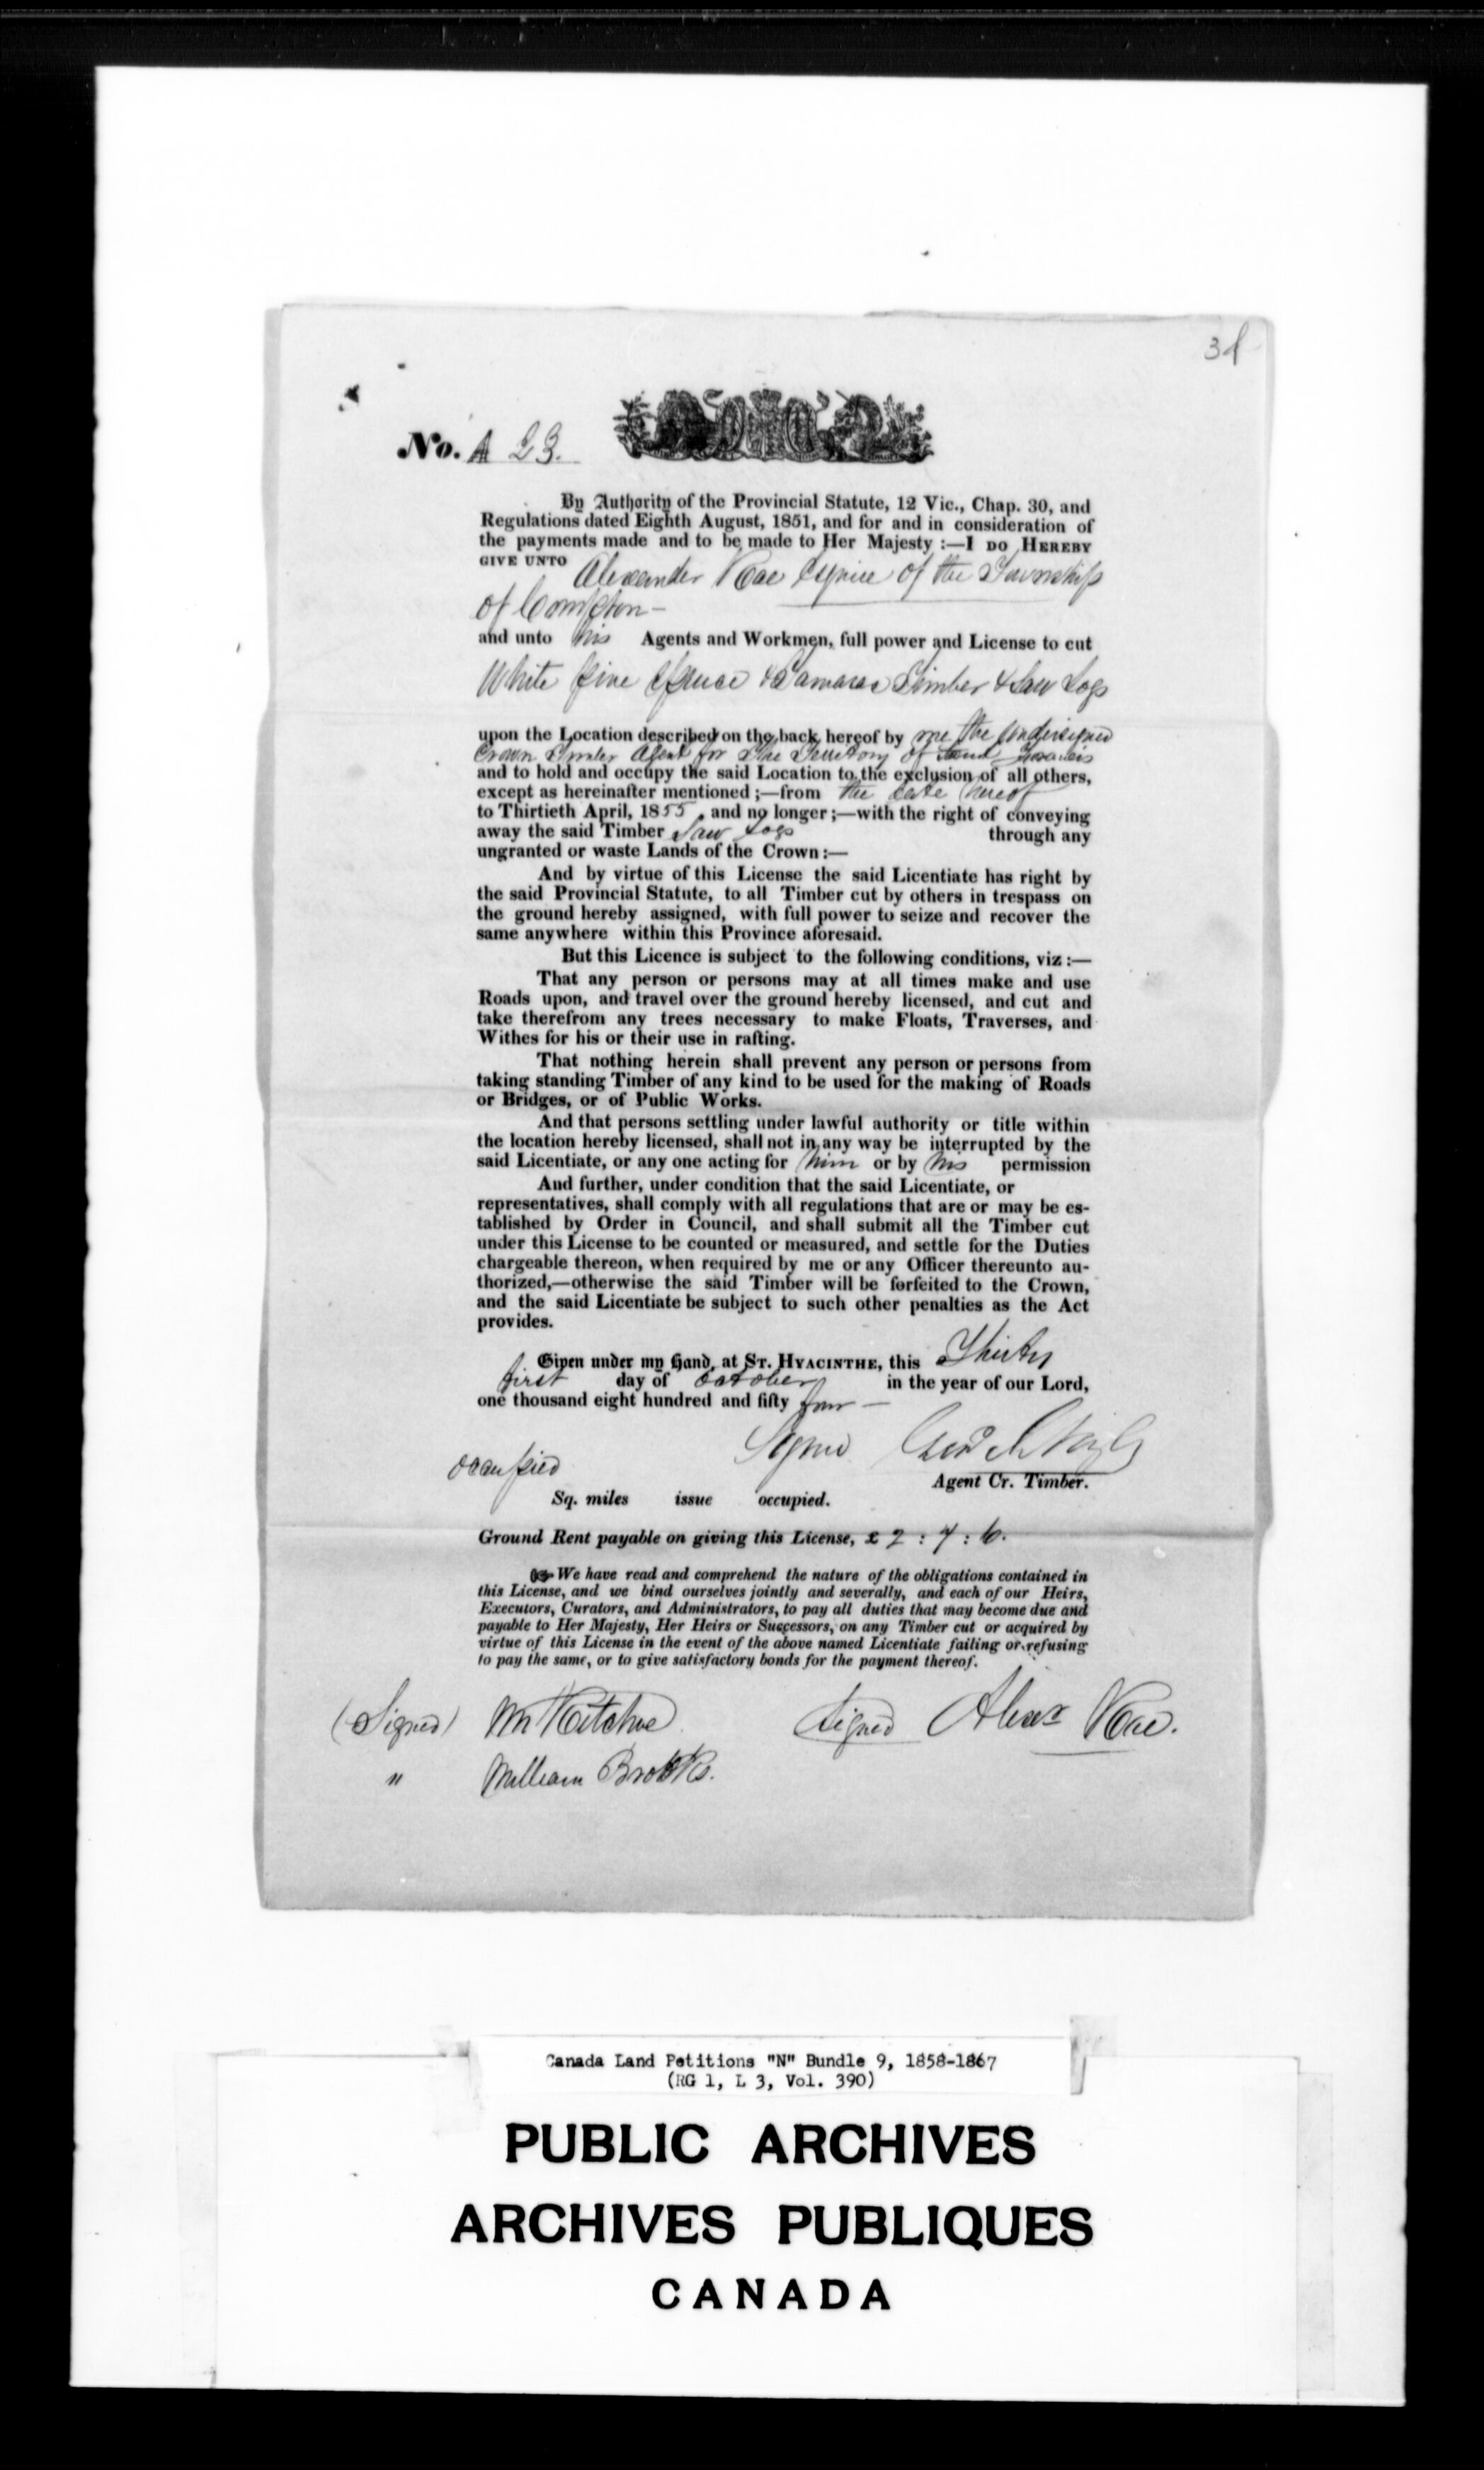 No. A 23.
By Authority of the Provincial Statute, 12 Vic., Chap. 30, and
Regulations dated Eighth August, 1851, and for and in consideration of
the payments made and to be made to Her Majesty :—I DO HEREBY
GIVE UNTO Alexander Rae Esquire of the Township
of Compton—
and unto his Agents and Workmen, full power and License to cut
White pine Spruce & Tamarac Timber & Saw Logs
upon the Location described on the back hereof by me the undersigned
Crown Timber Agent for The Territory of Saint Francis
and to hold and occupy the said Location to the exclusion of all others,
except as hereinafter mentioned ;—from the date hereof
to Thirtieth April, 1855, and no longer ;—with the right of conveying
away the said Timber Saw Logs through any
ungranted or waste Lands of the Crown :—
And by virtue of this License the said Licentiate has right by
the said Provincial Statute, to all Timber cut by others in trespass on
the ground hereby assigned, with full power to seize and recover the
same anywhere within this Province aforesaid.
But this Licence is subject to the following conditions, viz :—
That any person or persons may at all times make and use
Roads upon, and travel over the ground hereby licensed, and cut and
take therefrom any trees necessary to make Floats, Traverses, and
Withes for his or their use in rafting.
That nothing herein shall prevent any person or persons from
taking standing Timber of any kind to be used for the making of Roads
or Bridges, or of Public Works.
And that persons settling under lawful authority or title within
the location hereby licensed, shall not in any way be interrupted by the
said Licentiate, or any one acting for him or by his permission
And further, under condition that the said Licentiate, or
representatives, shall comply with all regulations that are or may be es-
tablished by Order in Council, and shall submit all the Timber cut
under this License to be counted or measured, and settle for the Duties
chargeable thereon, when required by me or any Officer thereunto au-
thorized,—otherwise the said Timber will be forfeited to the Crown,
and the said Licentiate be subject to such other penalties as the Act
provides.
Given under my Hand, at ST. HYACINTHE, this Thirty
first day of October in the year of our Lord,
one thousand eight hundred and fifty four —
Signed
occupied
Agent Cr. Timber.
Sq. miles issue occupied.
Ground Rent payable on giving this License, £ 2 : 7 : 6.
We have read and comprehend the nature of the obligations contained in
this License, and we bind ourselves jointly and severally, and each of our Heirs,
Executors, Curators, and Administrators, to pay all duties that may become due and
payable to Her Majesty, Her Heirs or Successors, on any Timber cut or acquired by
virtue of this License in the event of the above named Licentiate failing or refusing
to pay the same, or to give satisfactory bonds for the payment thereof.
(Signed) Wm Ritchie Signed Alexr Rae.
" William Brooks.
Canada Land Petitions "N" Bundle 9, 1858-1867
(RG 1, L 3, Vol. 390)
PUBLIC ARCHIVES
ARCHIVES PUBLIQUES
CANADA